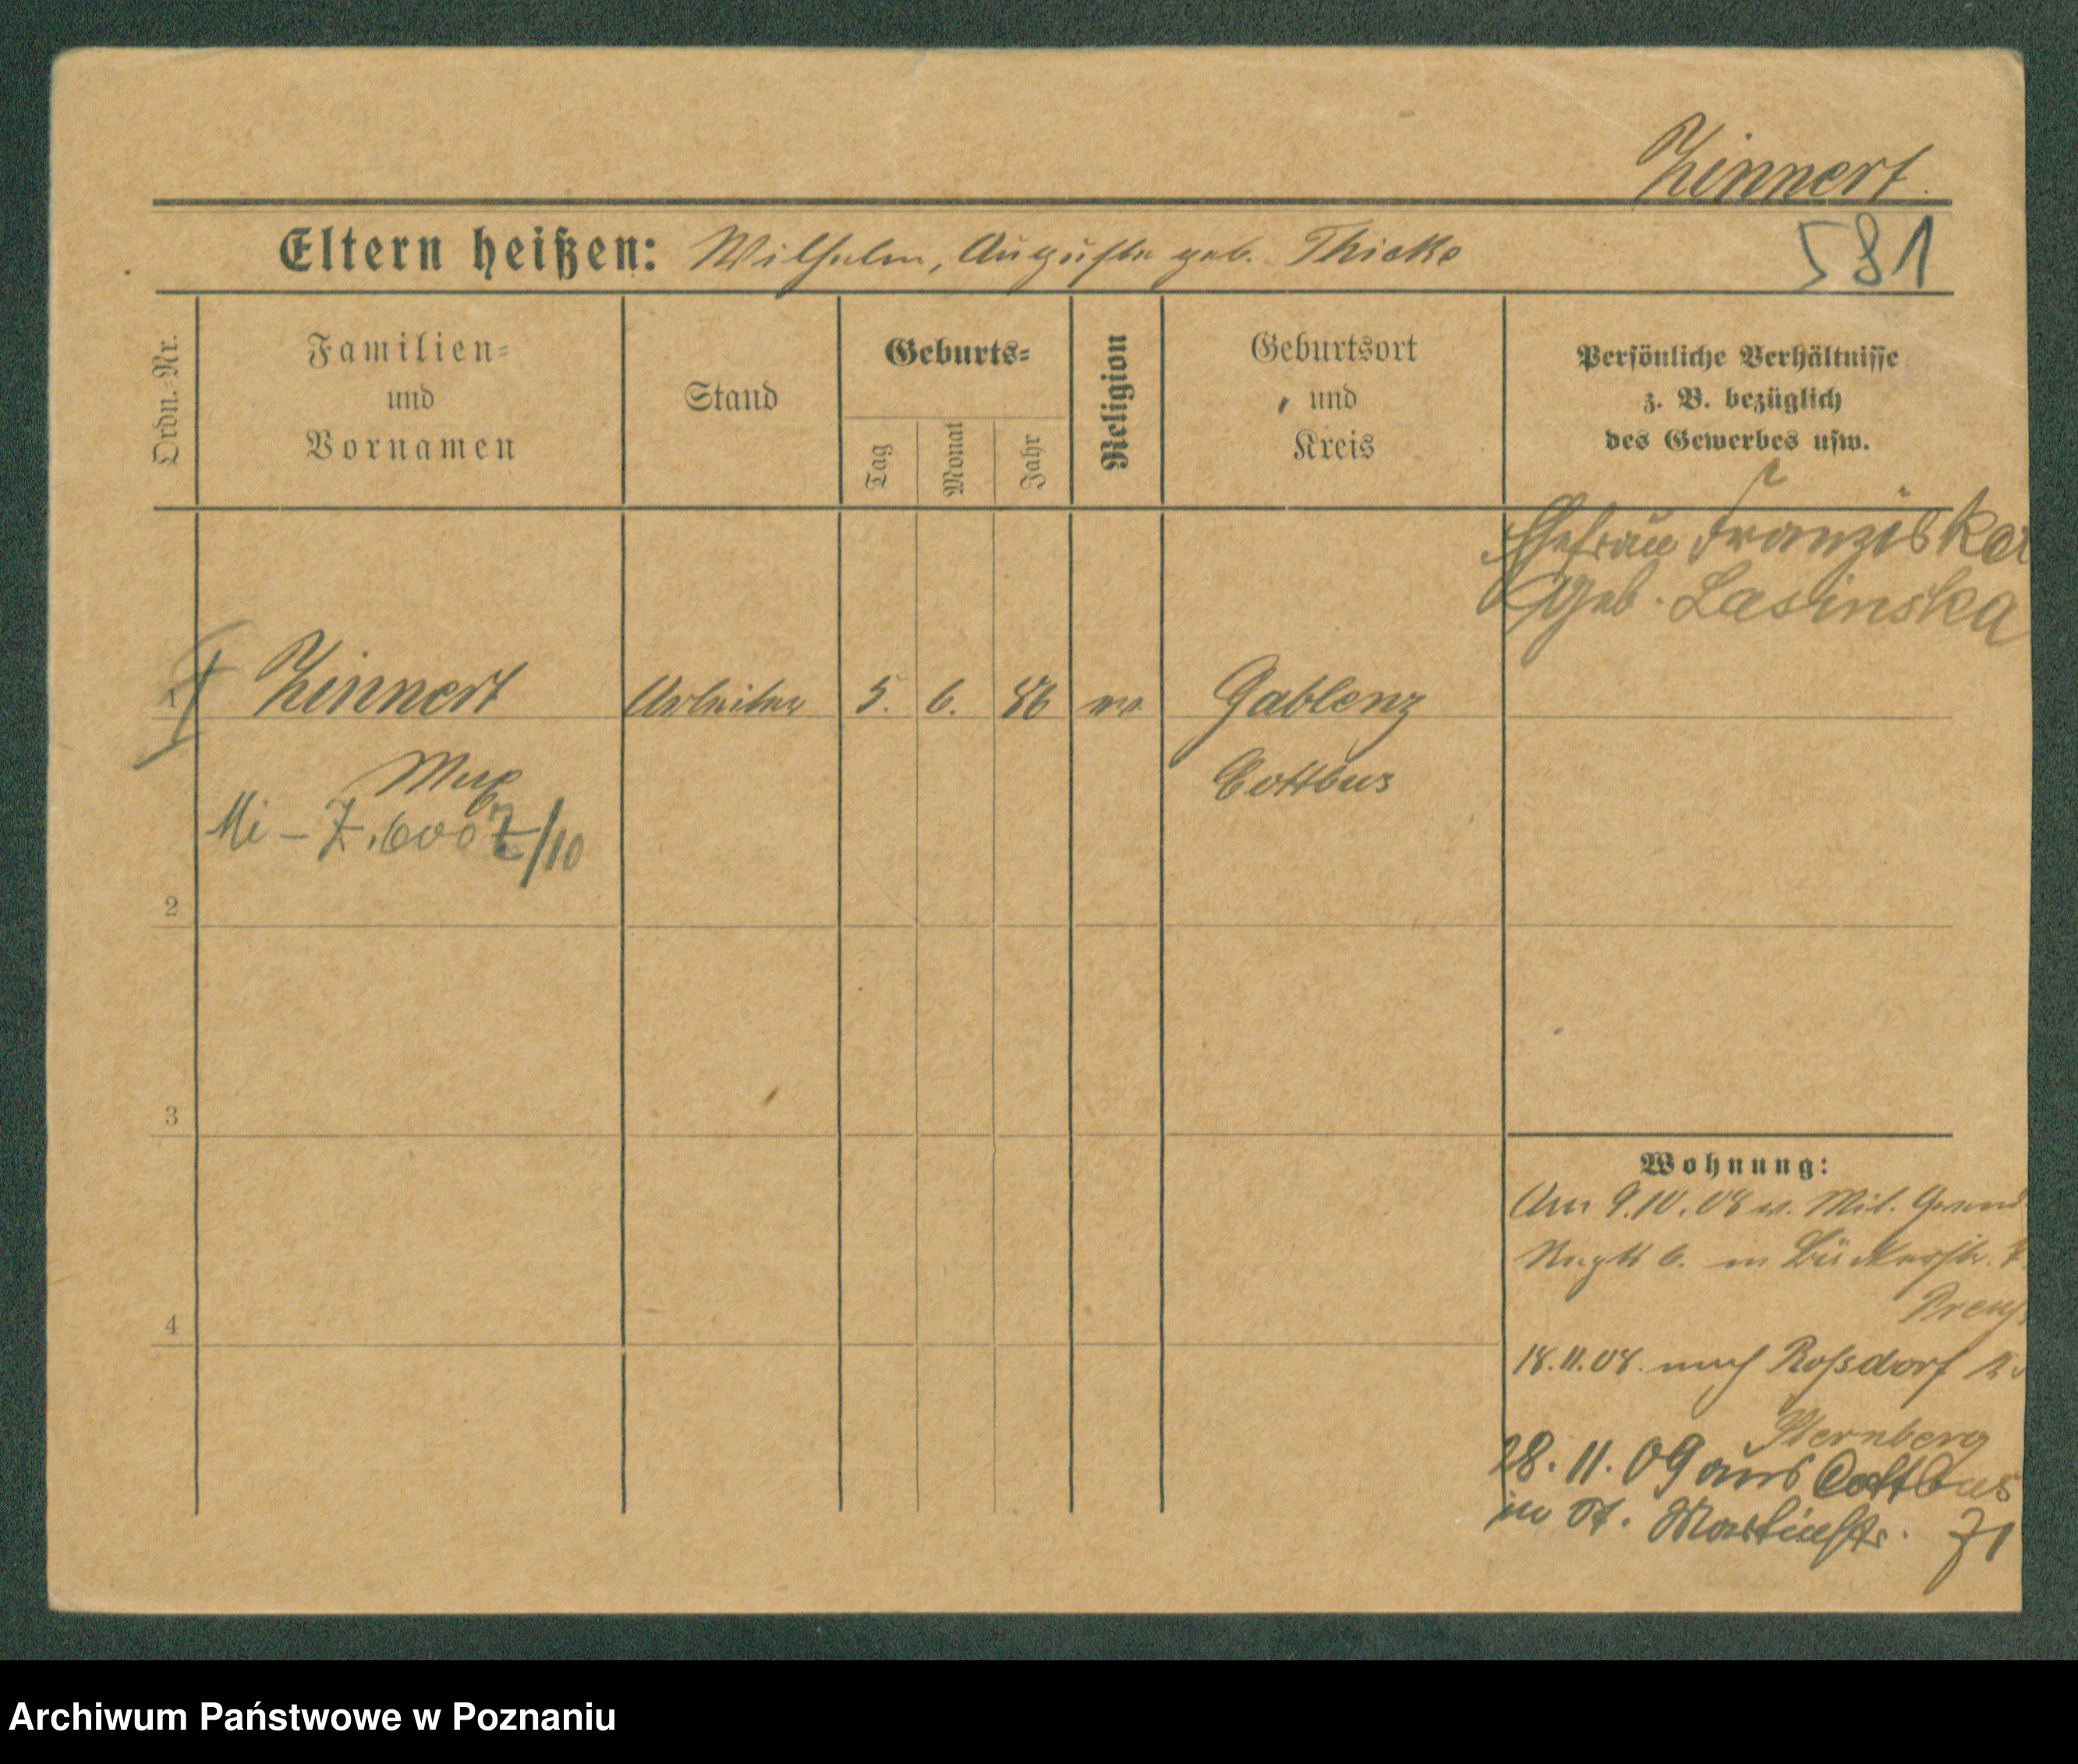 Zinnert.
Eltern heißen: Wilhelm, Auguste geb. Thicke
581
Ordn.-Nr.
Familien-
und
Vornamen
Stand
Geburts-
Tag
Monat
Jahr
Religion
Geburtsort
und
Kreis
Persönliche Verhältnisse
z. B. bezüglich
des Gewerbes usw.
Ehefrau Franziska
geb. Lasinska
1 Zinnert Arbeiter 5. 6. 86 ev. Gablenz
Max Cottbus
Mi - Z. 600 /10
2
3
4
Wohnung:
Am 9.10.08 v. Mil. Grend
Regt 6. in Bückerstr.
18.11.08. nach Roßdorf
Sternberg
28. 11. 09 aus Cottbus
in St. Martinstr. 71
Archiwum Państwowe w Poznaniu